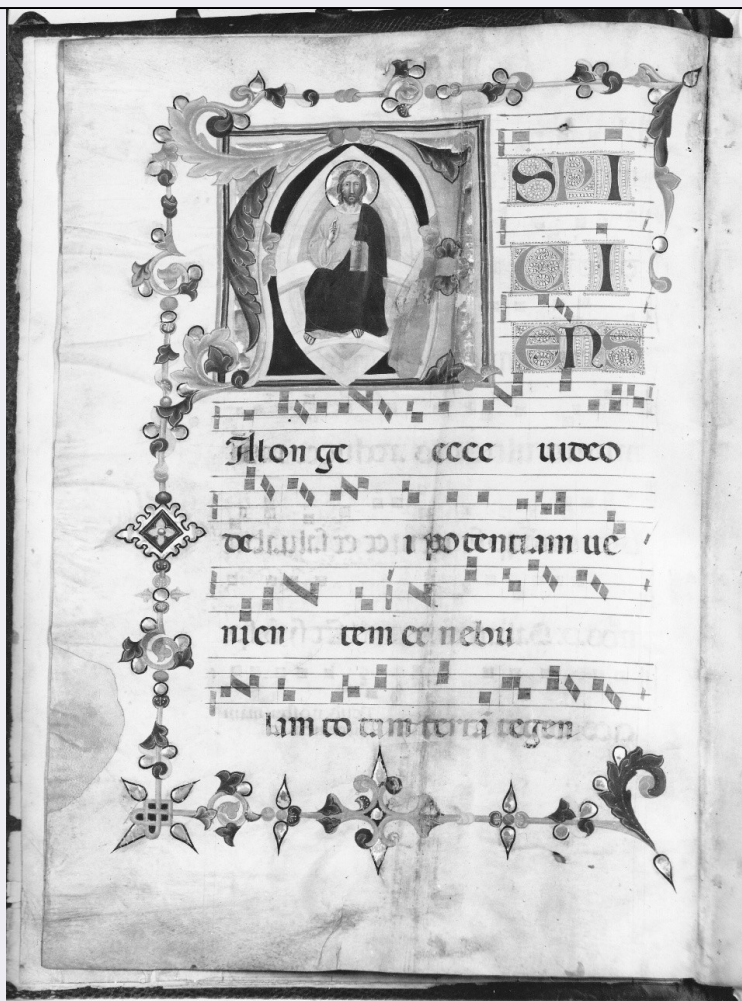 A
SPI
CI
ENS
A lon ge eeee video
de i potentiam ue
nien tem et nebu
lam to tam terra tegen